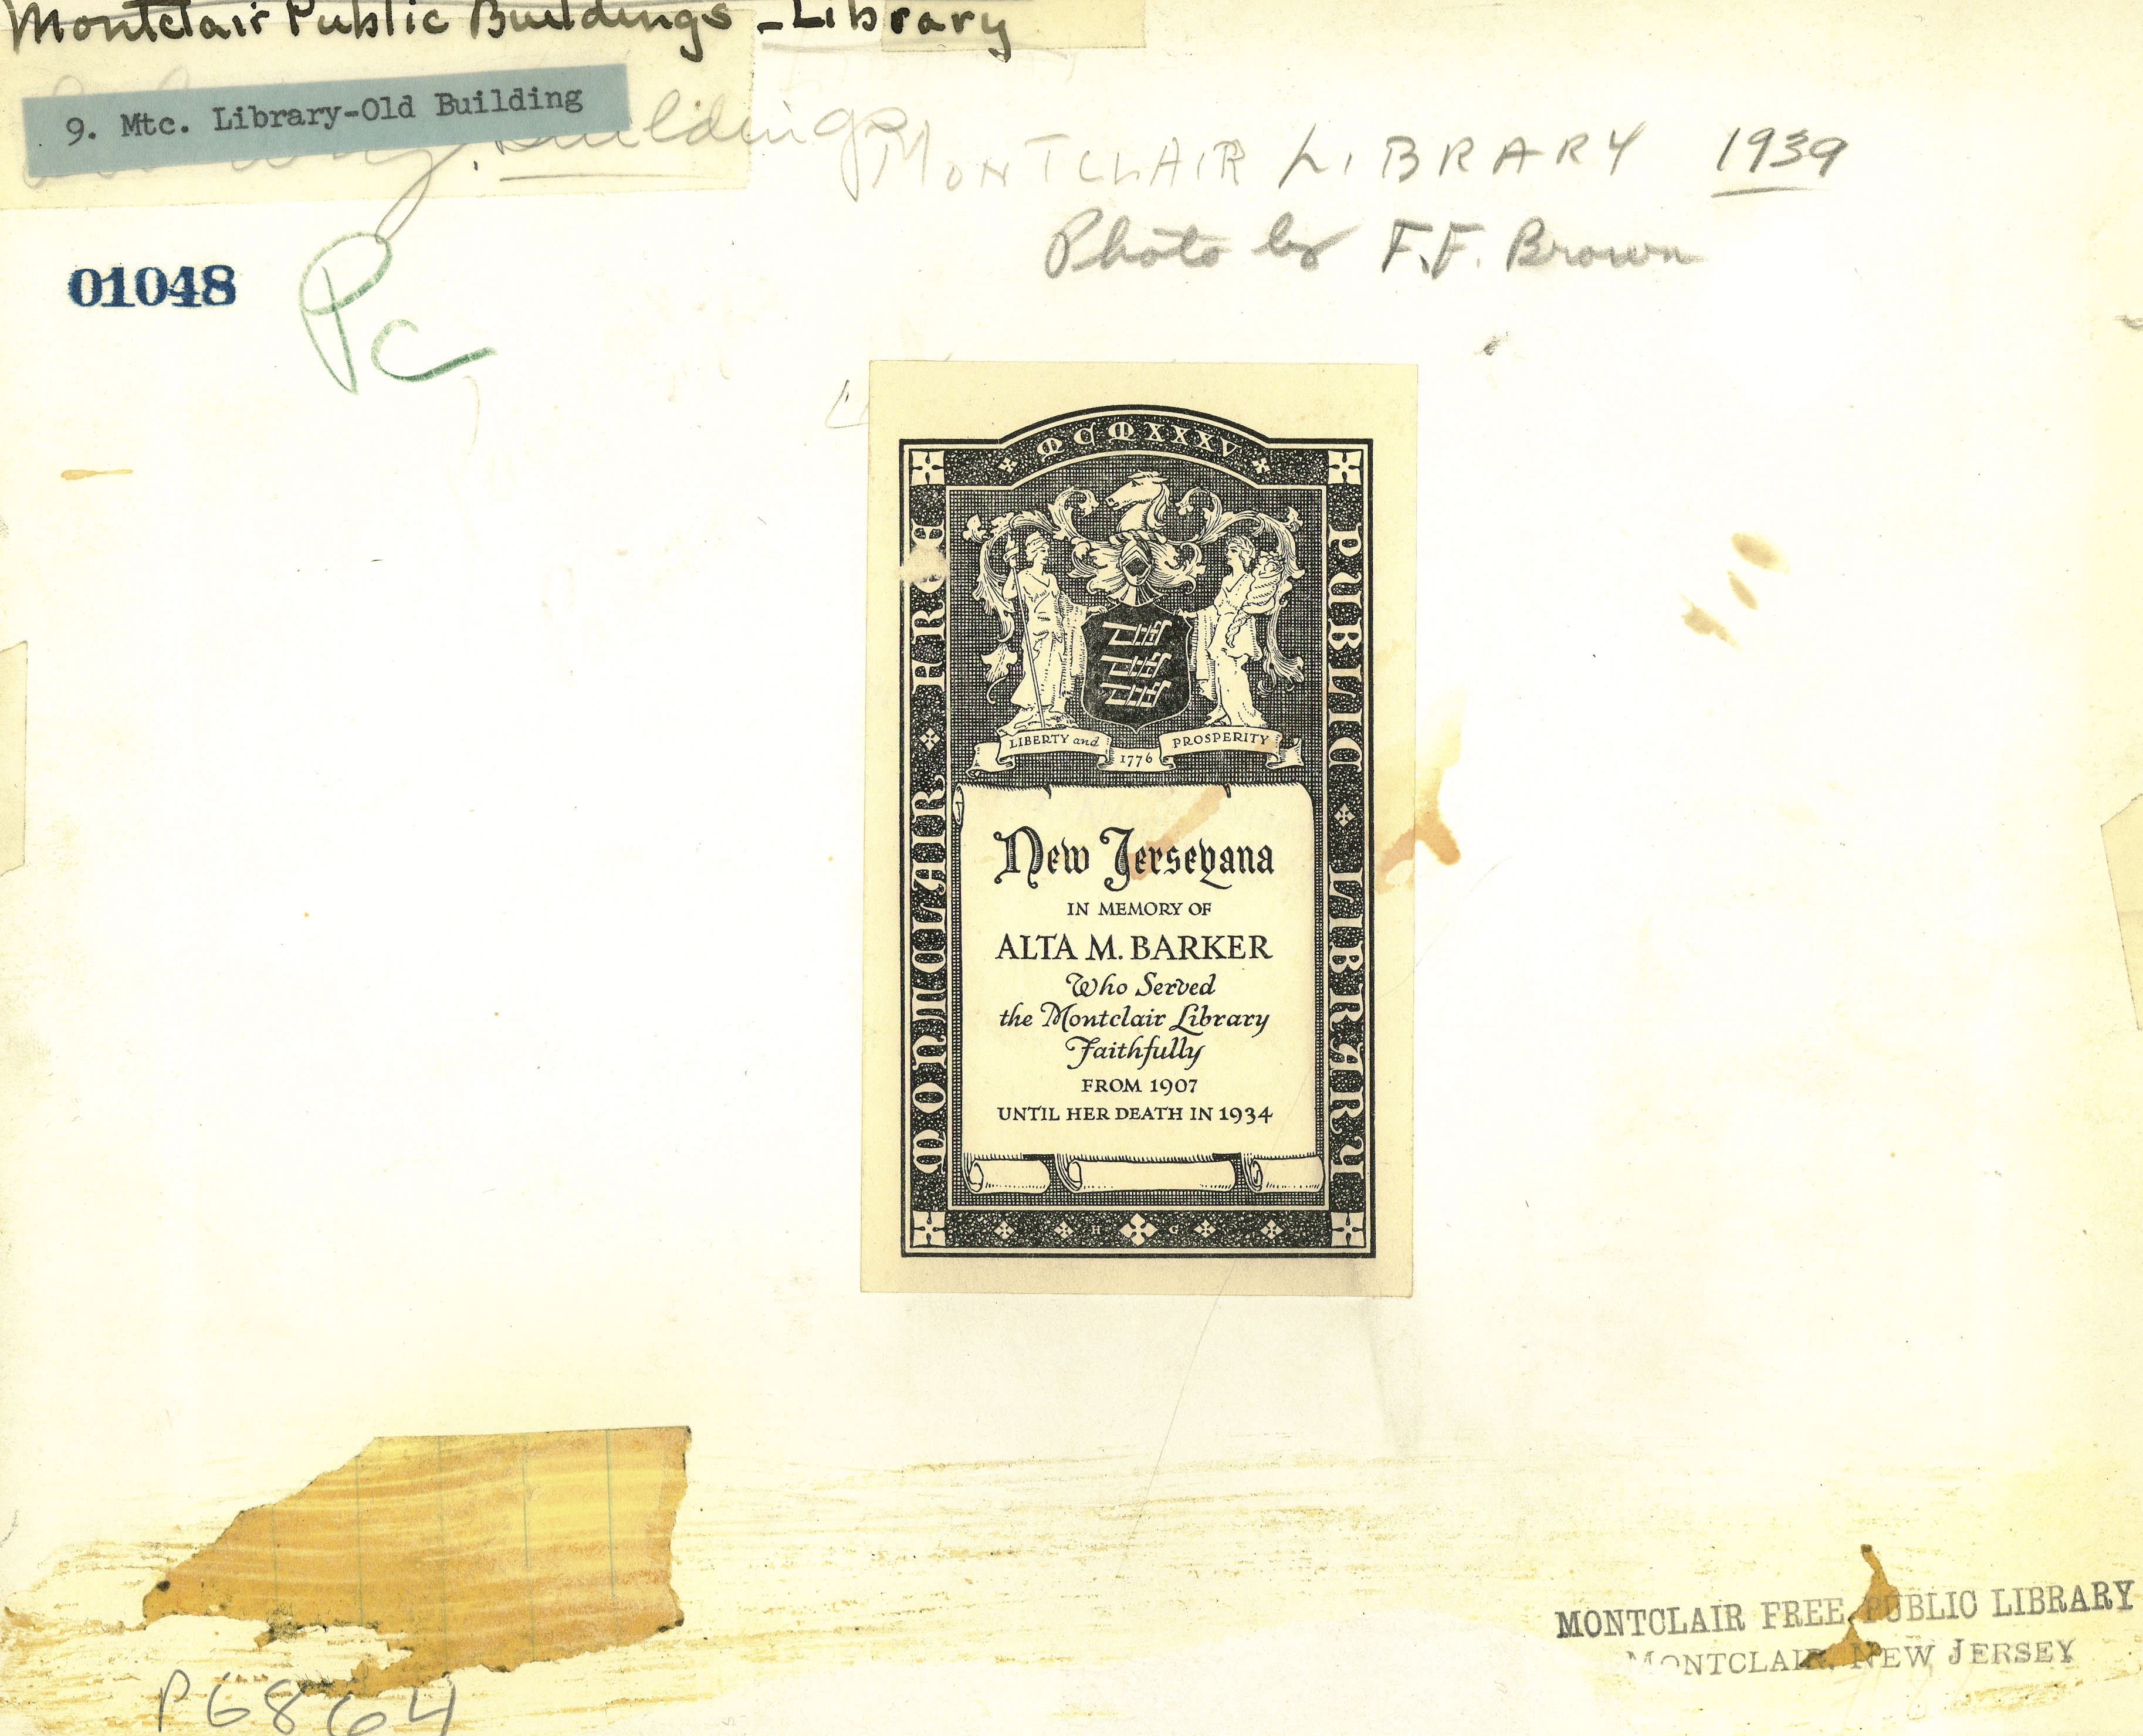 Montclair Public Buildings - Library
9. Mtc. Library-Old Building
Buildings
MONTCLAIR LIBRARY 1939
Photo by F.F. Brown
01048
Pc
MCMXXXV
MONTCLAIR FREE
PUBLIC LIBRARY
LIBERTY and PROSPERITY
1776
New Jerseyana
IN MEMORY OF
ALTA M. BARKER
Who Served
the Montclair Library
Faithfully
FROM 1907
UNTIL HER DEATH IN 1934
H G
MONTCLAIR FREE PUBLIC LIBRARY
MONTCLAIR, NEW JERSEY
P6864